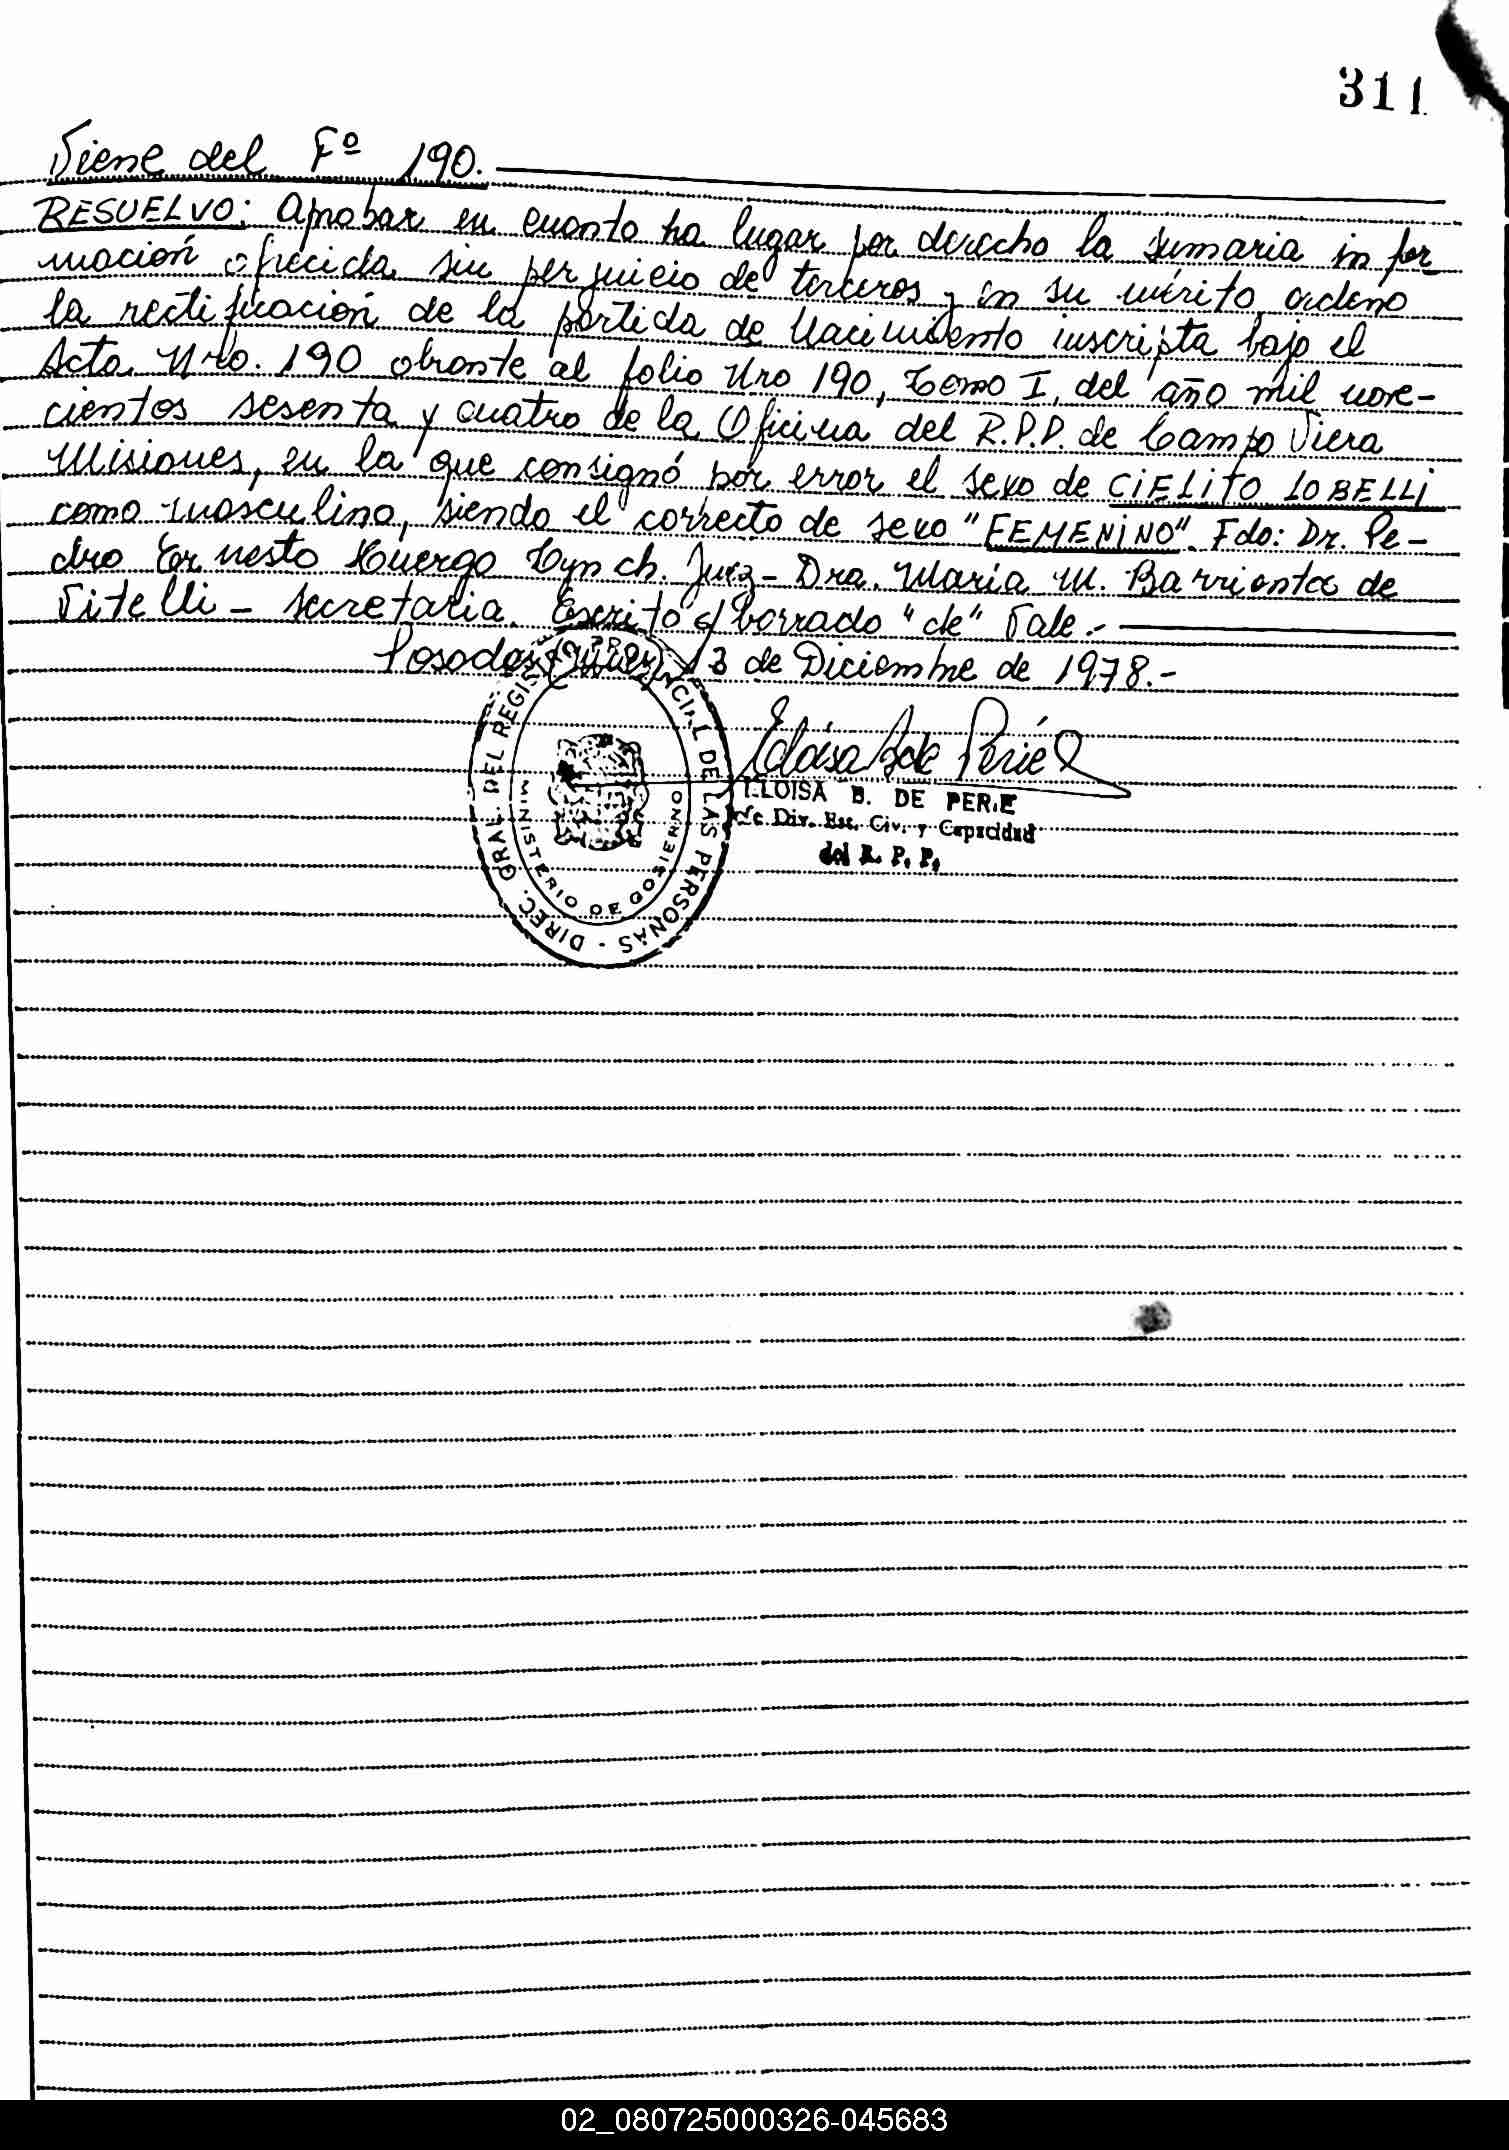 311
Viene del Fº 190.
RESUELVO: Aprobar en cuanto ha lugar por derecho la sumaria infor_
mación ofrecida, sin perjuicio de terceros y en su mérito, ordeno
la rectificación de la partida de Nacimiento inscripta bajo el
Acta Nro. 190 obrante al folio Nro 190, Tomo I, del año mil nove-
cientos sesenta y cuatro de la Oficina del R.P.P. de Campo Viera
Misiones, en la que consignó por error el sexo de CIELITO LOBELLI
como masculino, siendo el correcto de sexo "FEMENINO". Fdo: Dr. Pe-
dro Ernesto Huergo Lynch. Juez- Dra. María M. Barrientos de
Vitelli - secretaria. Escrito s/ borrado "de" Vale.-
Posadas, 13 de Diciembre de 1978.-
Eloisa B de Perié
ELOISA B. DE PERIE
a/c Div. Est. Civ. y Capacidad
del R. P. P.
DIREC. GRAL. DEL REGISTRO PROVINCIAL DE LAS PERSONAS -
MINISTERIO DE GOBIERNO
02_080725000326-045683